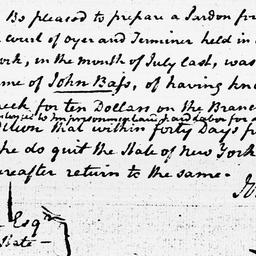 Be pleased to prepare a Pardon fr
court of Oyer and Terminer held in
ork, in the month of July last, was
me of John Bass, of having kno
eck for ten Dollars on the Branc
to imprisonment and hard labor for
dition that within forty Days f
he do quit the State of New York
ereafter return to the same.-
Jo
Esqr
State -